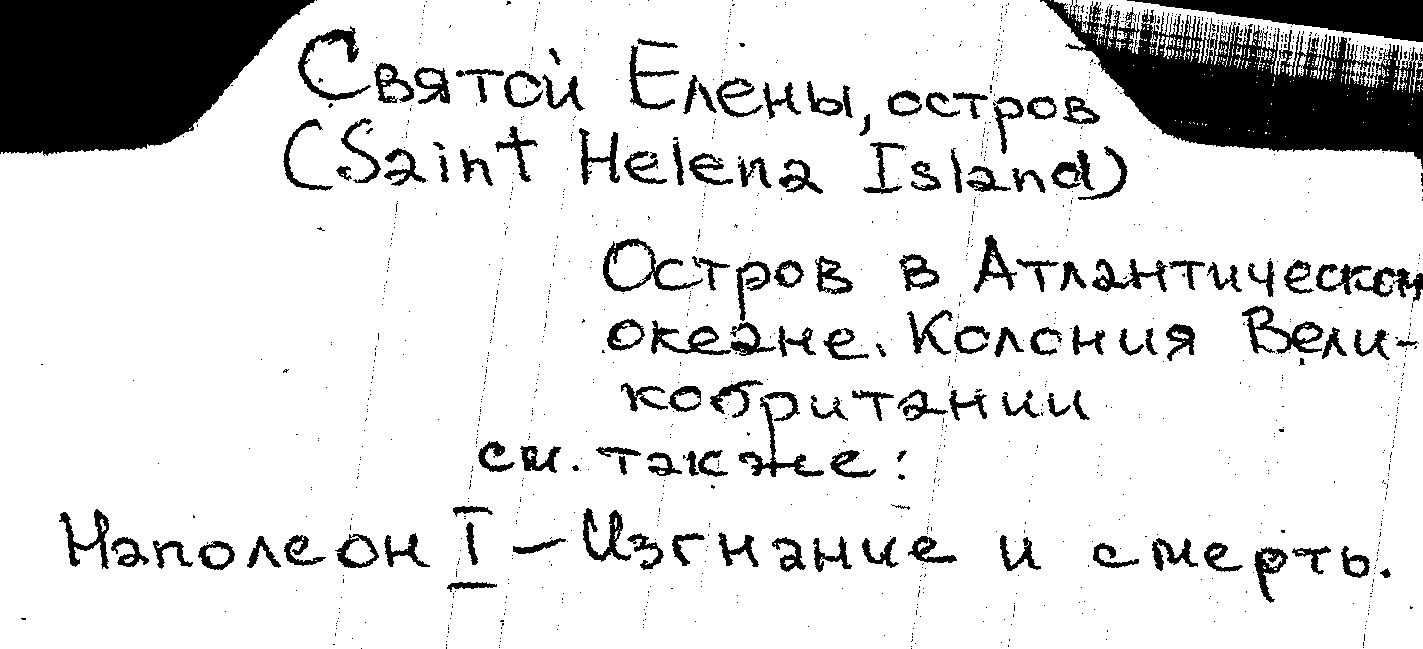 Святой Елены, остров
(Saint Helena Island)
Остров в Атлантическом
океане. Колония Вели-
кобритании
см. также:
Наполеон I — Изгнание и смерть.